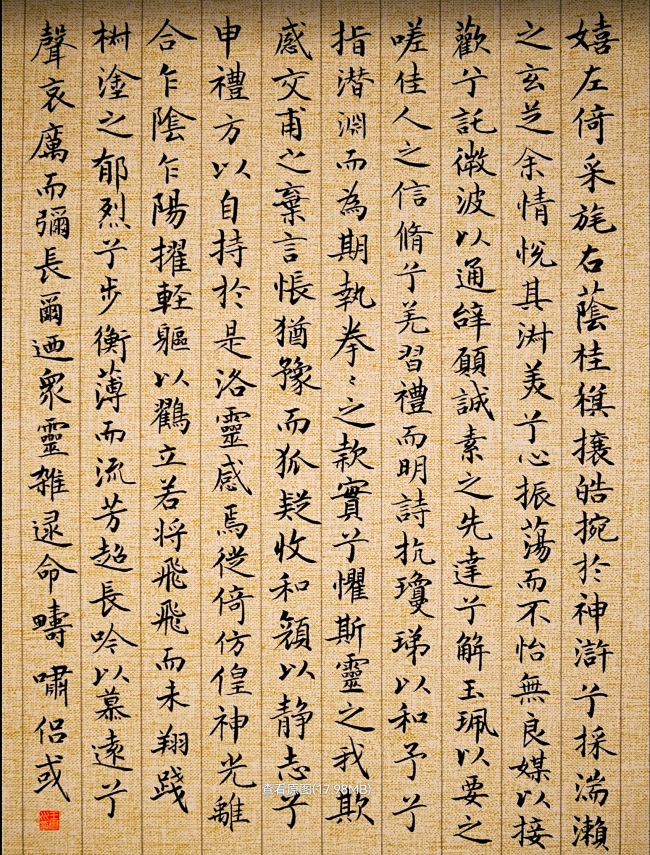 嬉左倚采旄右蔭桂旗攘皓捥於神滸兮採湍瀨
之玄芝余情悅其淑美兮心振蕩而不怡無良媒以接
歡兮託微波以通辭願誠素之先達兮解玉珮以要之
嗟佳人之信脩兮羌習禮而明詩抗瓊珶以和予兮
指潛淵而為期執拳〻之款實兮懼斯靈之我欺
感交甫之棄言悵猶豫而狐疑收和顏以静志兮
申禮方以自持於是洛靈感焉徙倚仿偟神光離
合乍陰乍陽擢軽軀以鶴立若将飛飛而未翔踐
椒塗之郁烈兮步衡薄而流芳超長吟以慕遠兮
聲哀厲而彌長爾迺衆靈雜遝命疇嘯侶或
查看原图(17.98MB)